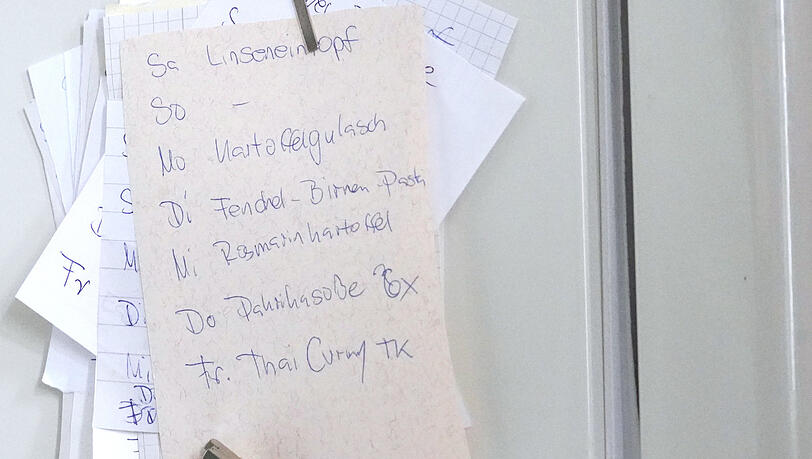 Sa Linseneintopf
So -
Mo Kartoffelgulasch
Di Fenchel-Birnen-Pasta
Mi Rosmarinkartoffel
Do Paprikasoße 6x
Fr. Thai Curry TK
Fr
Di
Mi